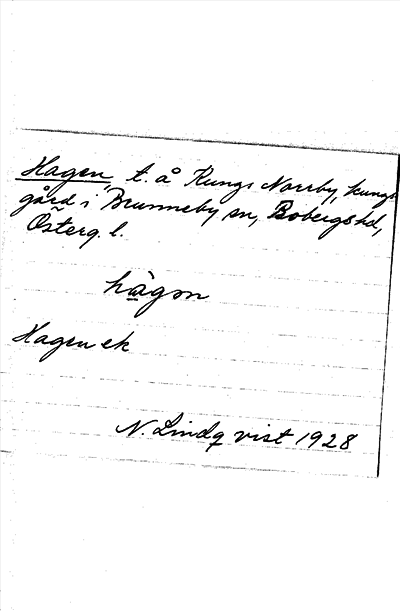 Hagen t. å Kungs Norrby, kungs
gård i Brunneby sn, Bobergs hd,
Österg. l.
hàgǝn
Hagen ek
N. Lindqvist 1928